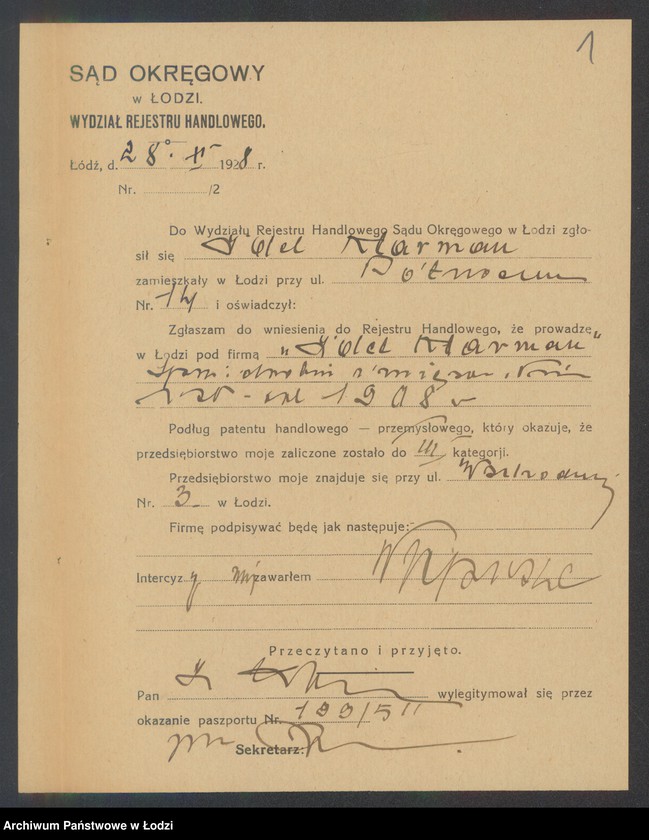 1
SĄD OKRĘGOWY
w ŁODZI.
WYDZIAŁ REJESTRU HANDLOWEGO.
Łódź, d. 28 XI 1928 r.
Nr. /2
Do Wydziału Rejestru Handlowego Sądu Okręgowego w Łodzi zgło-
sił się Idel Klarman
zamieszkały w Łodzi przy ul. Północnej
Nr. 14 i oświadczył:
Zgłaszam do wniesienia do Rejestru Handlowego, że prowadzę
w Łodzi pod firmą „Idel Klarman"
1908
Podług patentu handlowego — przemysłowego, który okazuje, że
przedsiębiorstwo moje zaliczone zostało do III kategorji.
Przedsiębiorstwo moje znajduje się przy ul. Wschodniej
Nr. 3 w Łodzi.
Firmę podpisywać będę jak następuje:
Intercyzy nie zawarłem
Przeczytano i przyjęto.
Pan wylegitymował się przez
okazanie paszportu Nr.
Sekretarz:
Archiwum Państwowe w Łodzi